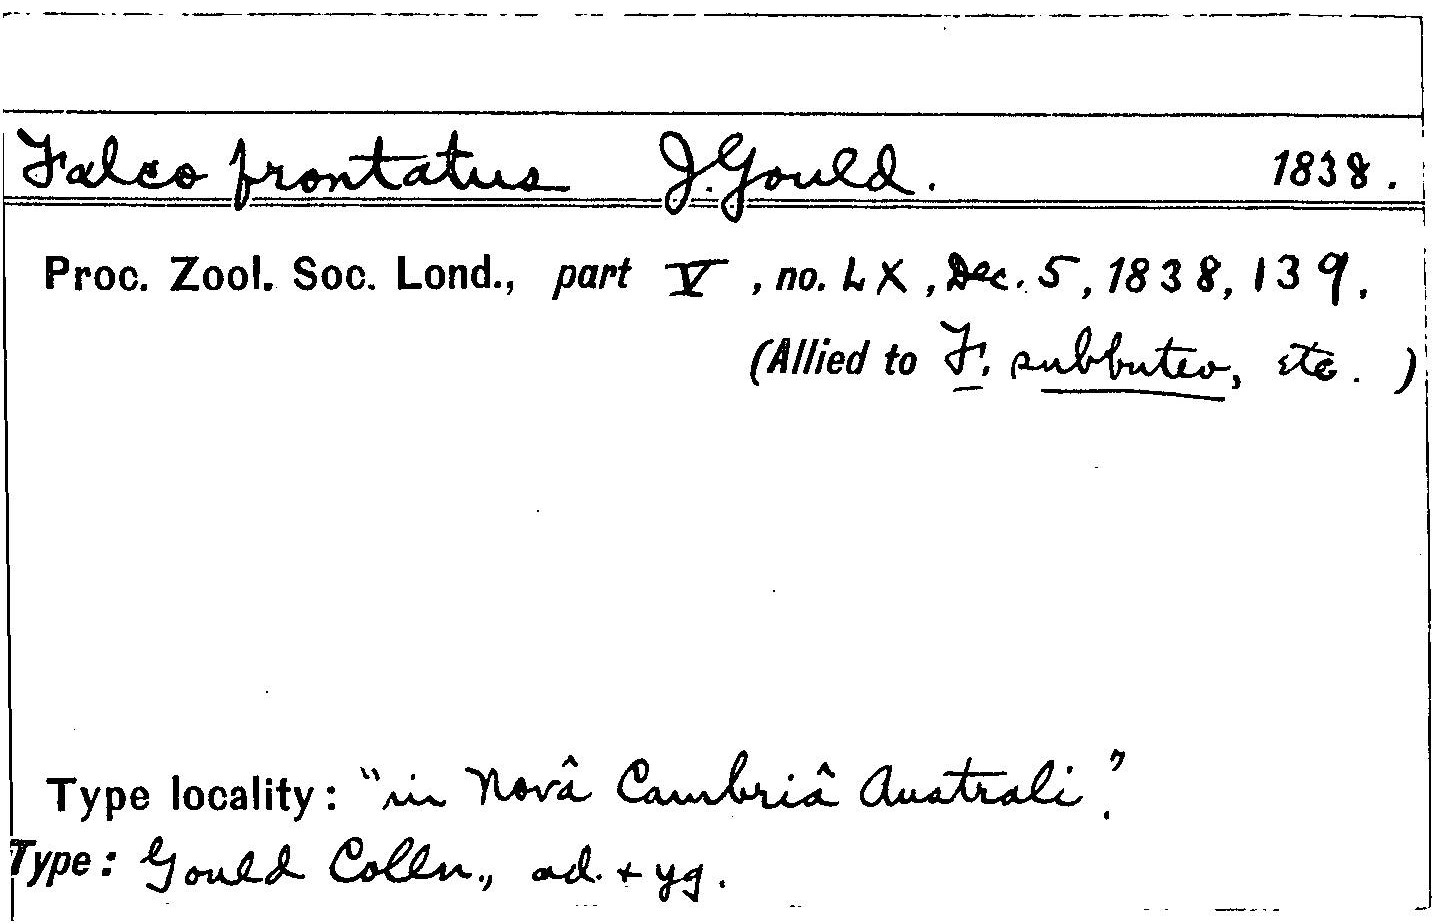 Falco frontatus J. Gould. 1838.
Proc. Zool. Soc. Lond., part V, no. LX, Dec. 5, 1838, 139.
(Allied to F. subbuteo, etc.)
Type locality: "in Novâ Cambriâ Australi".
Type: Gould Colln., ad. + yg.